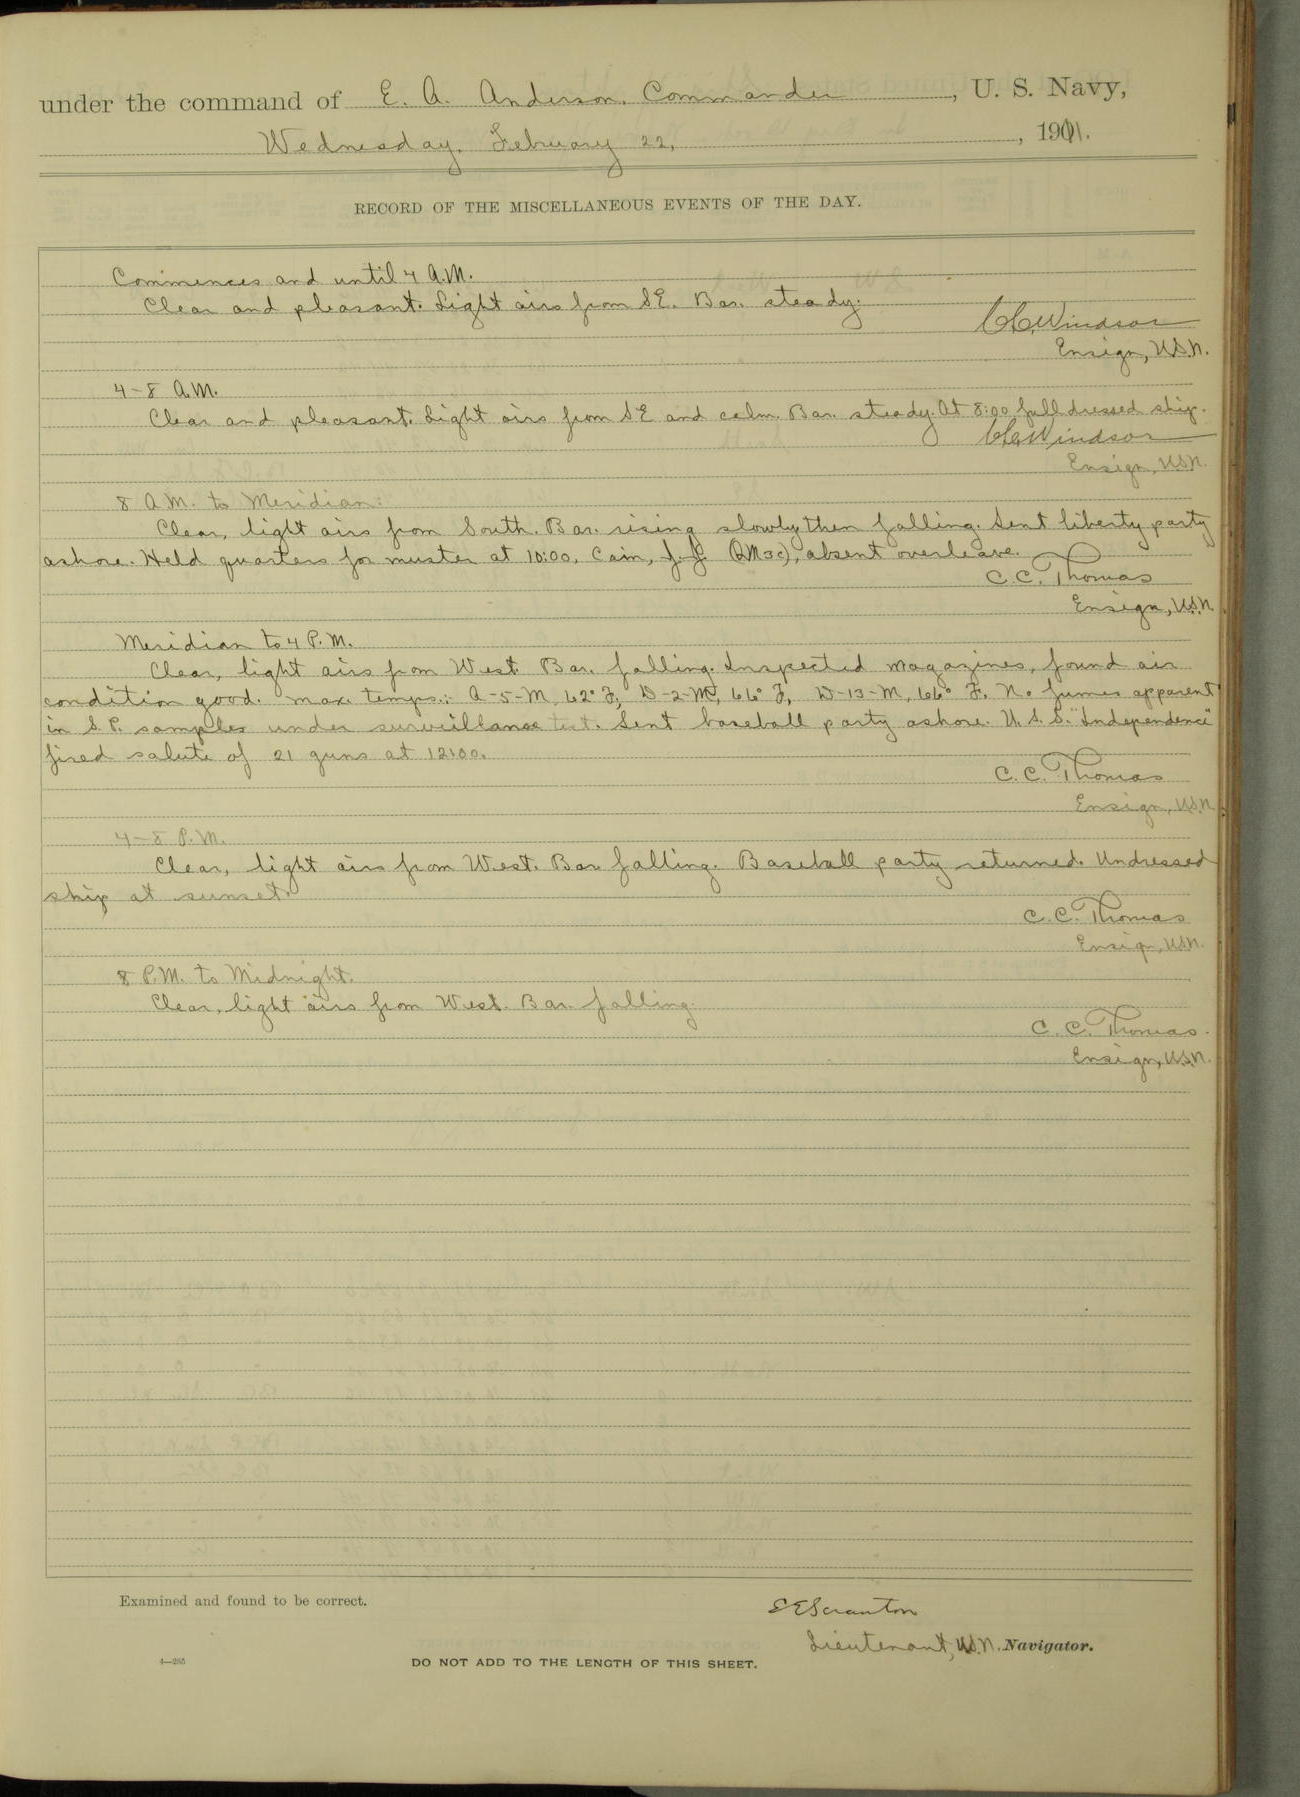 under the command of E. A. Anderson, Commander, U. S. Navy,
Wednesday, February 22, 1911.
RECORD OF THE MISCELLANEOUS EVENTS OF THE DAY.
Commences and until 4 A.M.
Clear and pleasant. Light airs from SE. Bar. steady.
CCWindsor
Ensign, U.S.N.
4-8 A.M.
Clear and pleasant. Light airs from SE and calm. Bar. steady. At 8:00 full dressed ship.
CCWindsor
Ensign, U.S.N.
8 A.M. to Meridian:
Clear, light airs from South. Bar. rising slowly then falling. Sent liberty party
ashore. Held quarters for muster at 10:00, Cain, J. J. (QM3c), absent overleave.
C. C. Thomas
Ensign, U.S.N.
Meridian to 4 P.M.
Clear, light airs from West. Bar. falling. Inspected magazines, found air
condition good. Max. temps.:- A-5-M, 62° F, D-2-M, 66° F, D-13-M, 66° F. No fumes apparent
in S.P. samples under surveillance test. Sent baseball party ashore. U.S.S. "Independence"
fired salute of 21 guns at 12:00.
C. C. Thomas
Ensign, U.S.N.
4-8 P.M.
Clear, light airs from West. Bar falling. Baseball party returned. Undressed
ship at sunset.
C. C. Thomas
Ensign, U.S.N.
8 P.M. to Midnight.
Clear, light airs from West. Bar. falling.
C. C. Thomas.
Ensign, U.S.N.
Examined and found to be correct.
E E Scranton
Lieutenant, U.S.N. Navigator.
4—285
DO NOT ADD TO THE LENGTH OF THIS SHEET.